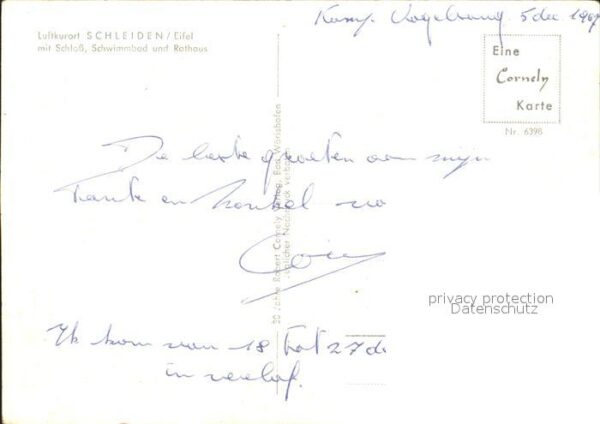 Kamp. Vogelsang 5 dec. 1967
Luftkurort SCHLEIDEN / Eifel
mit Schloß, Schwimmbad und Rathaus
Eine
Cornely
Karte
Nr. 6398
De beste groeten aan mijn
tante en
30 Jahre Robert Cornely Verlag, Bad Wörishofen
Jeglicher Nachdruck verboten
privacy protection
Datenschutz
Ik kom van 18 tot 27 de
in verlof.